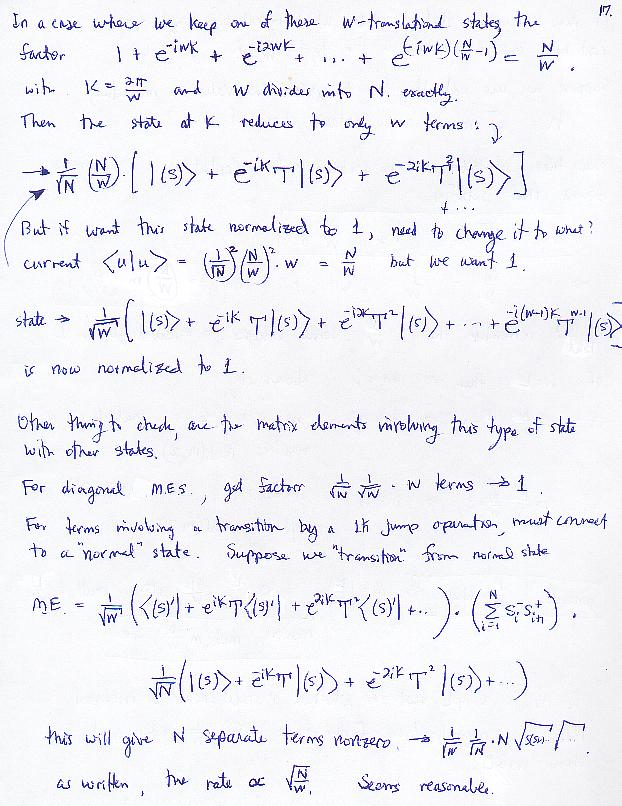 17.
In a case where we keep one of these w-translational states, the
factor 1 + e^{-iwk} + e^{-i2wk} + ... + e^{(-iwk)(N/w - 1)} = N/w .
with K = 2π/w and w divides into N exactly.
Then the state at K reduces to only w terms :
→ 1/√N (N/w) · [ |(s)> + e^{-iK} T |(s)> + e^{-2iK} T^2 |(s)> ]
+ ...
But if want this state normalized to 1, need to change it to what?
current <u|u> = (1/√N)^2 (N/w)^2 · w = N/w but we want 1.
state → 1/√w ( |(s)> + e^{-iK} T |(s)> + e^{-i2K} T^2 |(s)> + ... + e^{-i(w-1)K} T^{w-1} |(s)>
is now normalized to 1.
Other thing to check, are the matrix elements involving this type of state
with other states.
For diagonal M.E.S., get factors 1/√w 1/√w · w terms → 1 .
For terms involving a transition by a 1K jump operation, must connect
to a "normal" state. Suppose we "transition" from normal state
M.E. = 1/√w ( <(s)'| + e^{iK} T <(s)'| + e^{2iK} T^2 <(s)'| + ... ) · ( Σ_{i=1}^{N} S_i^- S_{i+1}^+ ) ·
1/√N ( |(s)> + e^{-iK} T |(s)> + e^{-2iK} T^2 |(s)> + ... )
this will give N separate terms nonzero. → 1/√w 1/√N · N √s(s+1)-... √...
as written, the rate ∝ √N/w . Seems reasonable.